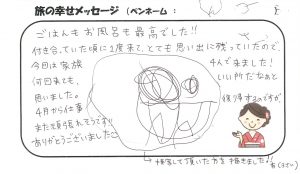 旅の幸せメッセージ (ペンネーム:
ごはんもお風呂も最高でした!!
付き合っていた頃に2度来て、とても思い出に残っていたので、
今回は家族4人で来ました!
何回来てもいい所だなぁと
思いました。
4月から仕事復帰するのですが
また頑張れそうです!!
ありがとうございました
接客して頂いた方を描きました!!